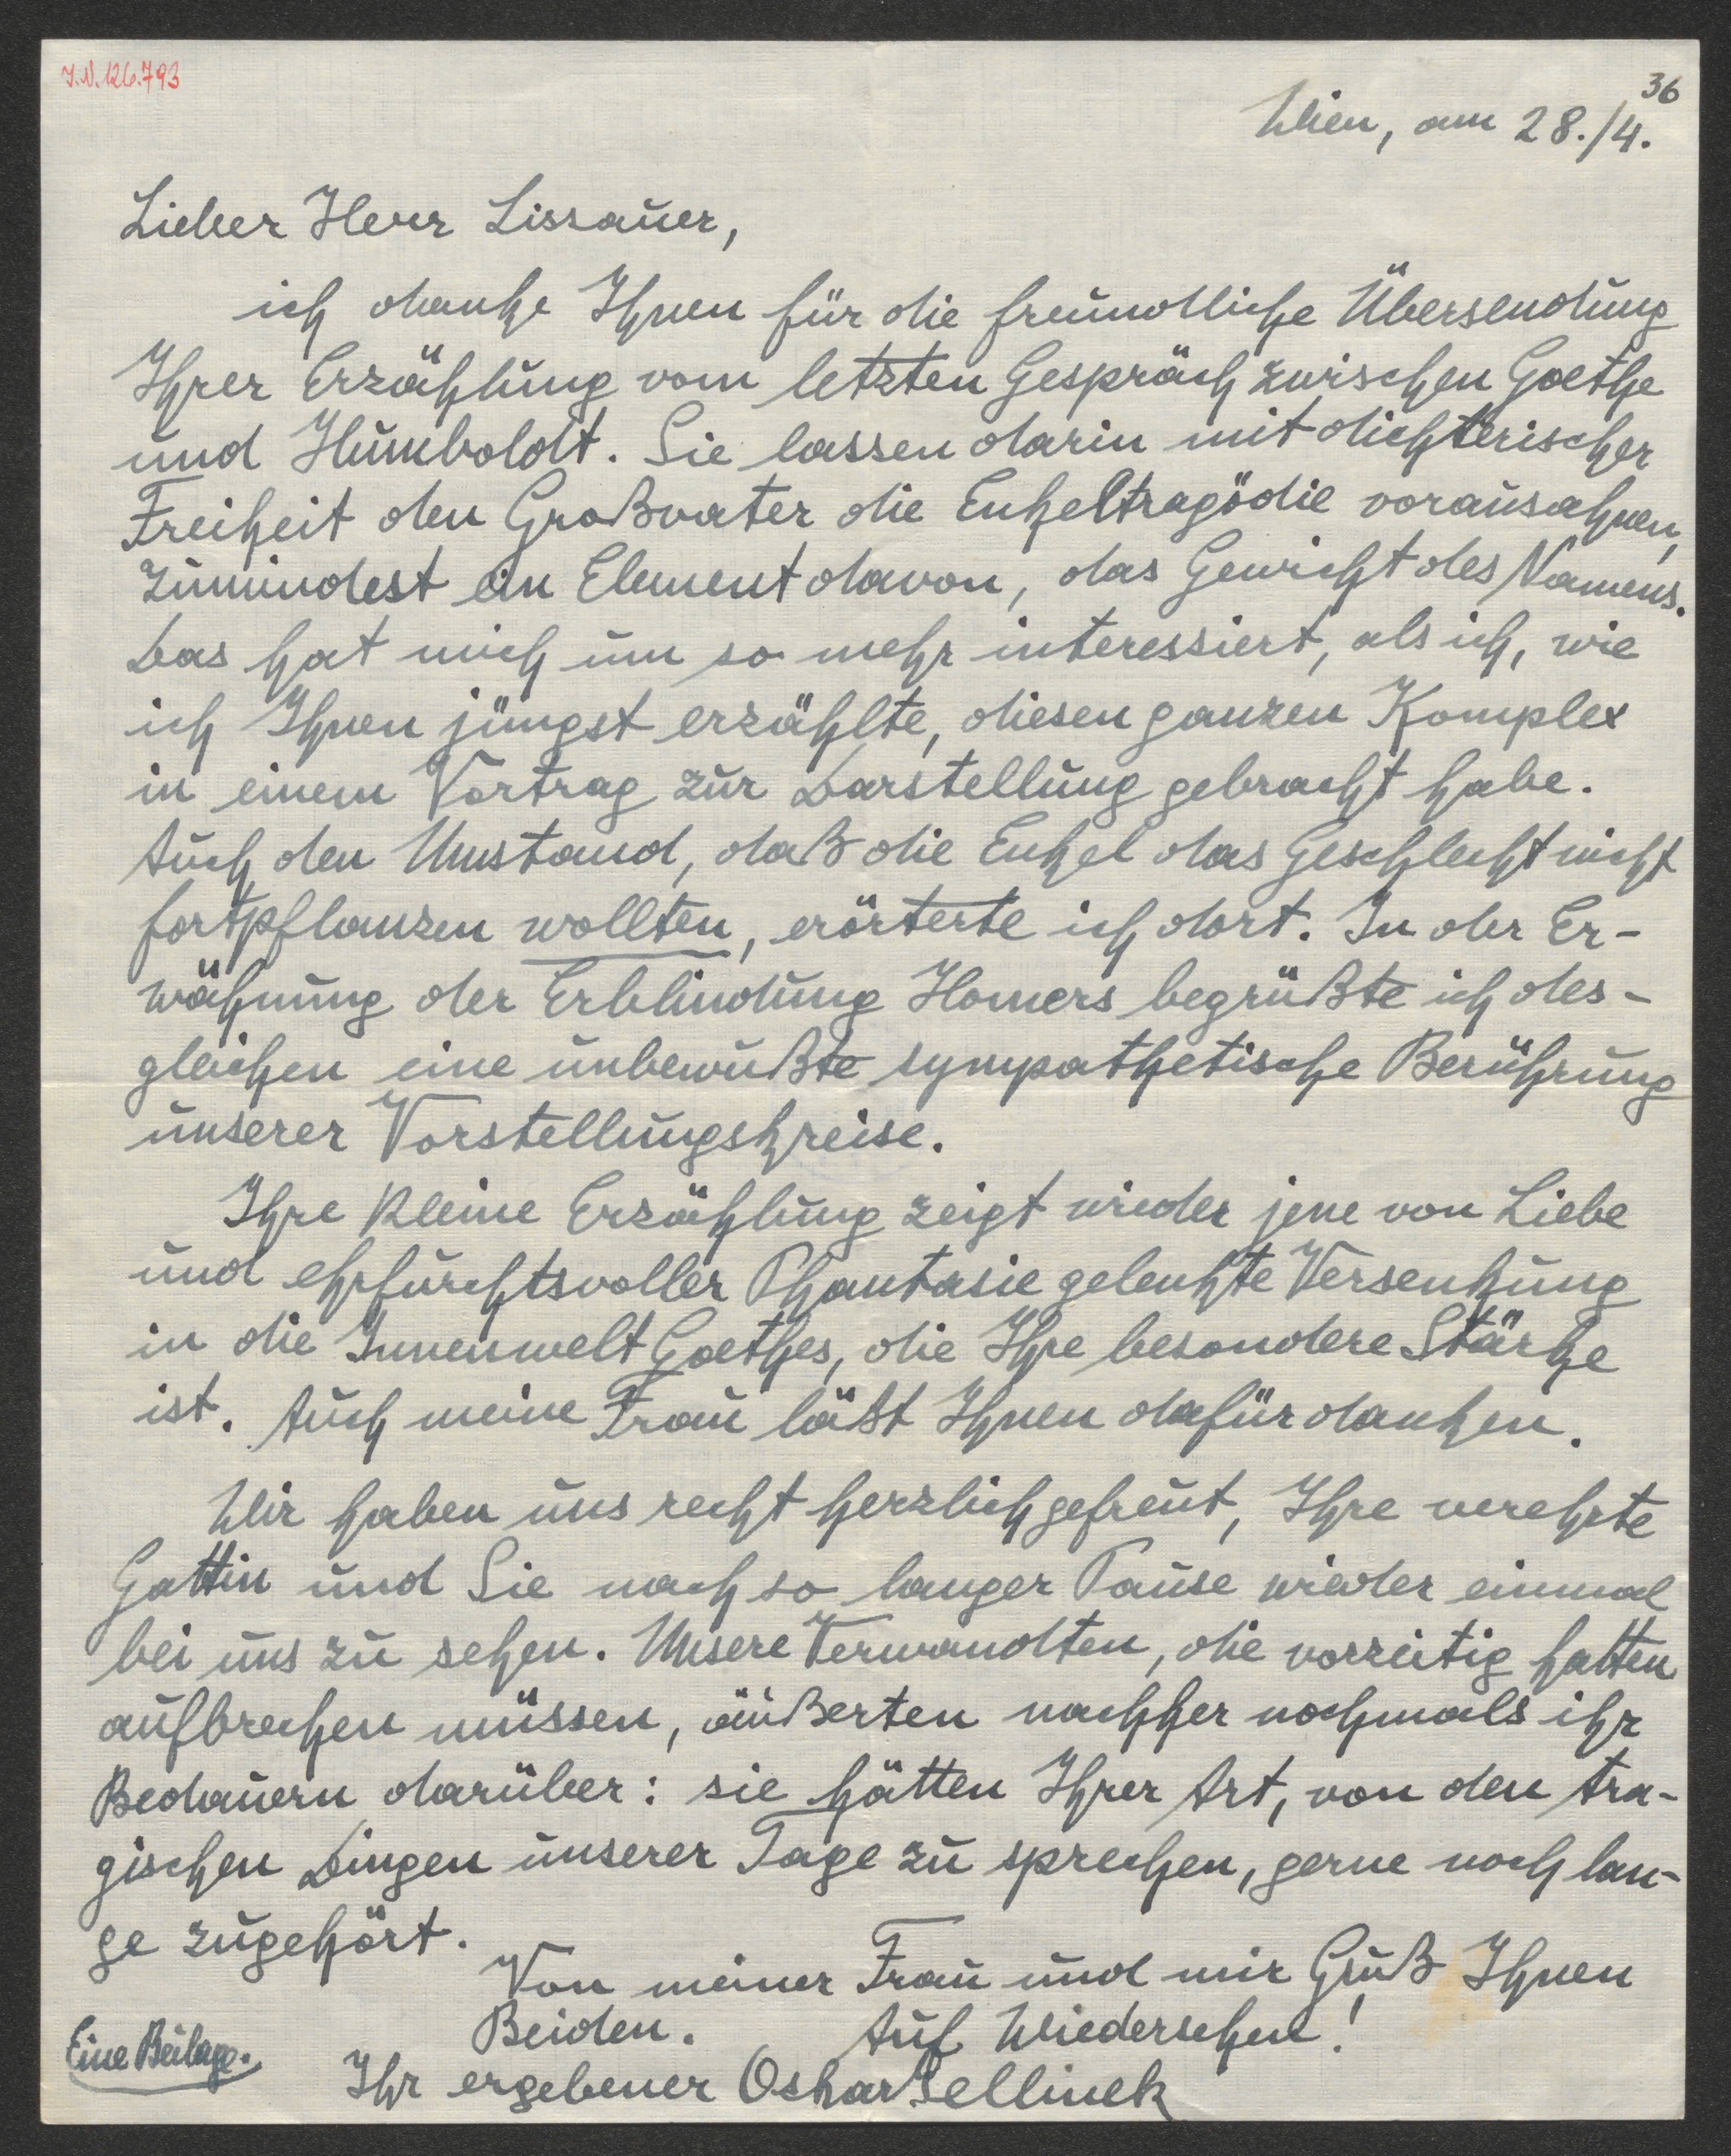 I.N. 126.793
36
Wien, am 28./4.
Lieber Herr Lissauer,
ich danke Ihnen für die freundliche Übersendung
Ihrer Erzählung vom letzten Gespräch zwischen Goethe
und Humboldt. Sie lassen darin mit dichterischer
Freiheit den Großvater die Enkeltragödie vorausahnen,
zumindest ein Element davon, das Gewicht des Namens.
Das hat mich um so mehr interessiert, als ich, wie
ich Ihnen jüngst erzählte, diesen ganzen Komplex
in einem Vortrag zur Darstellung gebracht habe.
Auch den Umstand, daß die Enkel das Geschlecht nicht
fortpflanzen wollten, erörterte ich dort. In der Er-
wähnung der Erblindung Homers begrüßte ich des-
gleichen eine unbewußte sympathetische Berührung
unserer Vorstellungskreise.
Ihre kleine Erzählung zeigt wieder jene von Liebe
und ehrfurchtsvoller Phantasie gelenkte Versenkung
in die Innenwelt Goethes, die Ihre besondere Stärke
ist. Auch meine Frau läßt Ihnen dafür danken.
Wir haben uns recht herzlich gefreut, Ihre verehrte
Gattin und Sie nach so langer Pause wieder einmal
bei uns zu sehen. Unsere Verwandten, die vorzeitig hatten
aufbrechen müssen, äußerten nachher nochmals ihr
Bedauern darüber: sie hätten Ihrer Art, von den tra-
gischen Dingen unserer Tage zu sprechen, gerne noch lan-
ge zugehört.
Von meiner Frau und mir Gruß Ihnen
Beiden. Auf Wiedersehen!
Eine Beilage.
Ihr ergebener Oskar Jellinek